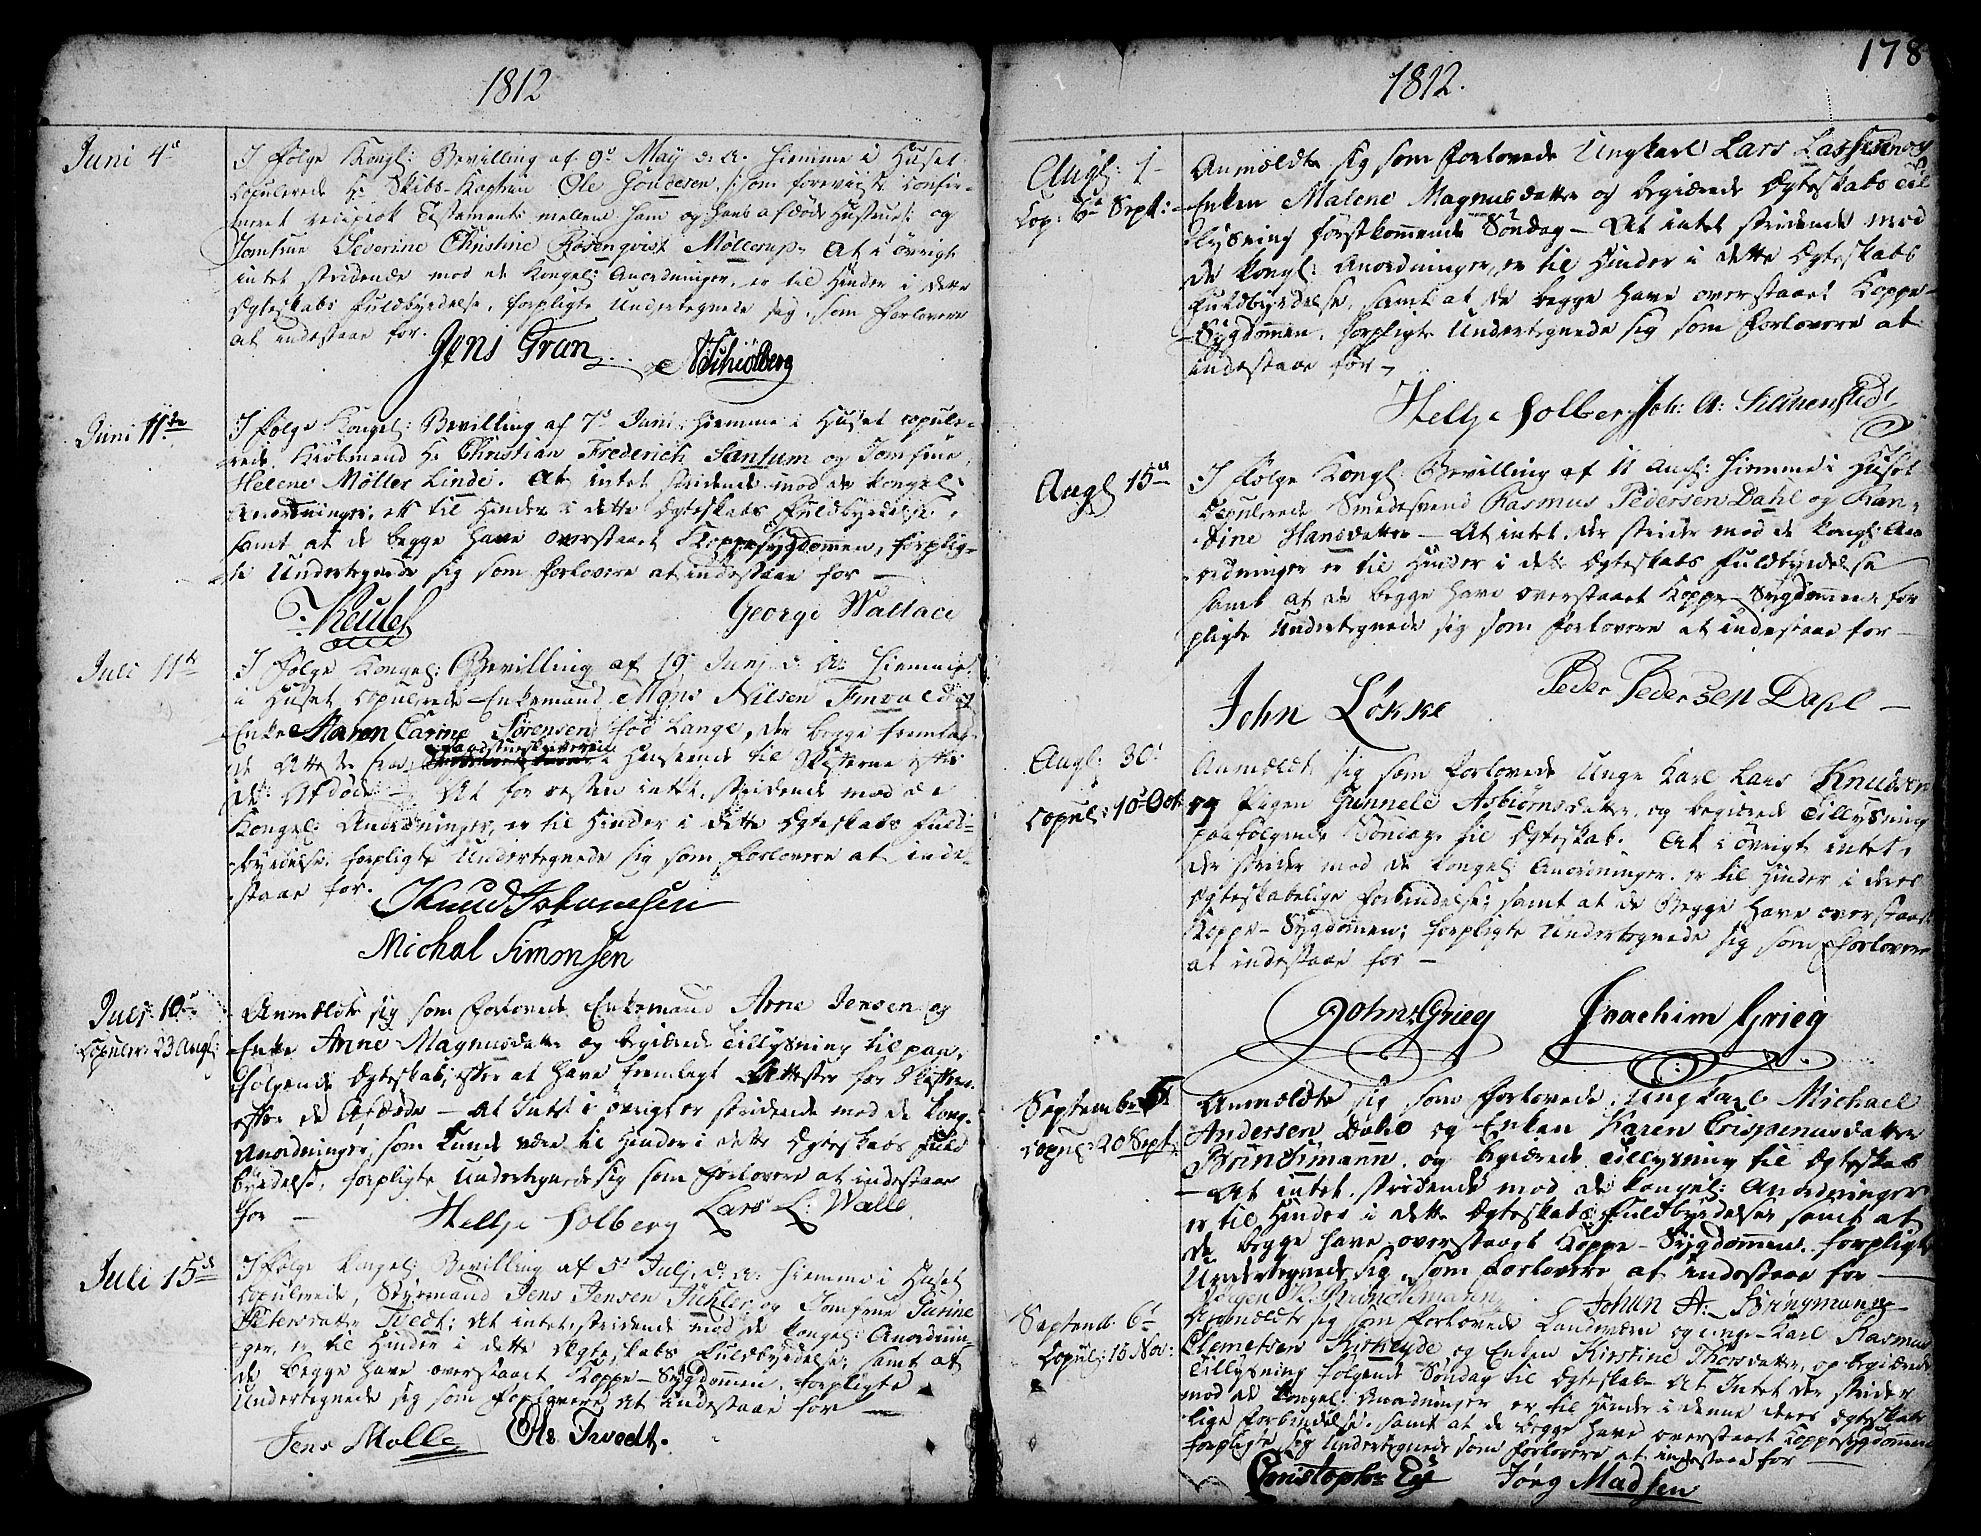 1812
Juni 4de
I følge Kongl: Bevilling af 9de May d: A: hiemme i Huset
copulerede Hr Skibs-Kaptain Ole Gundersen, /: som foreviiste confir-
meret reciprok Testamente mellem ham og hans afdøde Hustrue :/ og
Jomfrue Severine Christine Rosenqvist Møllerup. At i øvrigt
intet stridende mod de Kongel: Anordninger, er til Hinder i dette
Ægteskabs Fuldbyrdelse, forpligte Undertegnede sig, som Forlovere
at indestaae for.
Jens Gran N Schiøtberg
Juni 11te
I følge Kongel: Bevilling af 7de Juni, hiemme i Huset copule-
rede Kiøbmand Hr Christian Frederich Santum og Jomfrue
Helene Møller Linde. At intet stridende mod de kongel:
Anordninger, er til Hinder i dette Ægteskabs Fuldbyrdelse,
samt at de begge have overstaaet Koppesygdommen, forplig-
te Undertegnede sig som Forlovere at indestaae for —
George Wallace
Juli 11te
I følge Kongel: Bevilling af 19de Junj d: A: hiemme
i Huset copulerede Enkemand Mons Nilsen Finvald og
Enke Maren Carine Sørensen fød Lange, der begge fremlag-
de Atteste fra i Henseende til Skifterne efter
de Afdøde — At for resten intet stridende mod de
Kongel: Anordninger, er til Hinder i dette Ægteskabs Fuld-
byrdelse, forpligte Undertegnede sig som Forlovere at inde-
staae for.
Knud Johannesen
Michal Simonsen
Julj 10de
Copuler: 23 Augl:
Anmeldte sig som Forlovede Enkemand Arne Jensen og
Enke Anne Magnusdatter og begiærede Tillysning til paa-
følgende Ægteskab, efter at have fremlagt Attester for Skiftene
efter de Afdøde — At Intet i øvrigt er stridende mod de kong:
Anordninger, som kunde være til Hinder i dette Ægteskabs Fuld
byrdelse, forpligte Undertegnede sig som Forlovere at indestaae
for —
Hellje Solberg Lars L: Walle
Juli 15de
I følge Kongel: Bevilling af 5te Julj d: A: hiemme i Huset
copulerede, Styrmand Jens Jensen Fichler og Jomfrue Carine
Petersdatter Tvedt; At intet stridende mod de kongel: Anordnin-
ger, er til Hinder i dette Ægteskabs Fuldbyrdelse, samt at
de begge have overstaaet Koppe-Sygdommen, forpligte
Undertegnede sig som Forlovere at indestaae for —
Jens Molle Ole Tvedt.
178
1812.
Augl: 1
Cop: 6te Sept:
Anmeldte sig som Forlovede Ungkarl Lars Lassesen og
Enken Malene Magnusdatter og begiærede Ægteskabs Til
lysning førstkommende Søndag — At intet stridende mod
de kongl: Anordninger, er til Hinder i dette Ægteskabs
Fuldbyrdelse, samt at de begge have overstaaet Koppe-
Sygdommen, forpligte Undertegnede sig som Forlovere at
indestaae for —
Hellje Solberg Joh: A:
Augl 15de
I følge Kongl: Bevilling af 11 Augl: hiemme i Huset
copulerede Smedesvend Rasmus Pedersen Dahl og Karen
Stine Hansdatter — At intet, der strider mod de kongl: An-
ordninger er til Hinder i dette Ægteskabs Fuldbyrdelse
samt at de begge have overstaaet Koppe-Sygdommen, for
pligte Undertegnede sig som Forlovere at indestaae for —
John Løkke Peder Pedersen Dahl —
Augl: 30te
copul: 10de Oct:
Anmeldte sig som Forlovede Unge Karl Lars Knudsen
og Pigen Gunnele Asbiørnsdatter, og begiærede Tillysning
paafølgende Søndage til Ægteskab. At i øvrigt intet,
der strider mod de kongel: Anordninger, er til Hinder i deres
Ægteskabelige Forbindelse, samt at de Begge have overstaaet
Koppe-Sygdommen; forpligte Undertegnede sig som Forlovere
at indestaae for —
John Grieg Joachim Grieg
September
copul: 20 Sept:
Anmeldte sig som Forlovede, Ungkarl Michael
Andersen Dahl og Enken Karen Crispinusdatter
Brinchmann, og begiærede Tillysning til Ægteskab
— At intet, stridende mod de kongel: Anordninger
er til Hinder i dette Ægteskabs Fuldbyrdelse, samt at
de begge have overstaaet Koppe-Sygdommen, forpligte
Undertegnede sig, som Forlovere at indestaae for —
Johan A:
Septemb: 6te
Copul: 18 Nov:
Anmeldte sig som Forlovede Landsværn og unge Karl Rasmus
Clemetsen Kirkeyde og Enken Kirstine Thorsdatter, og begiærede
Tillysning følgende Søndag til Ægteskab. At Intet der strider
mod de Kongel: Anordninger er til Hinder i denne deres Ægteskabe-
lige Forbindelse, samt at de begge have overstaaet Koppesygdommen
forpligte sig Undertegnede som Forlovere at indestaae for —
Christopher Eje Jørg Madsen